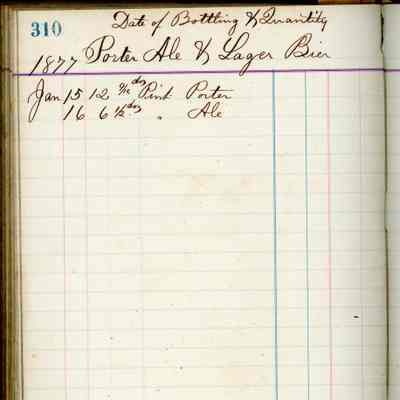 310
Date of Bottling & Quantity
1877 Porter Ale & Lager Bier
Jan 15 12 9/12 dos Pint Porter
16 6 1/2 dos " Ale